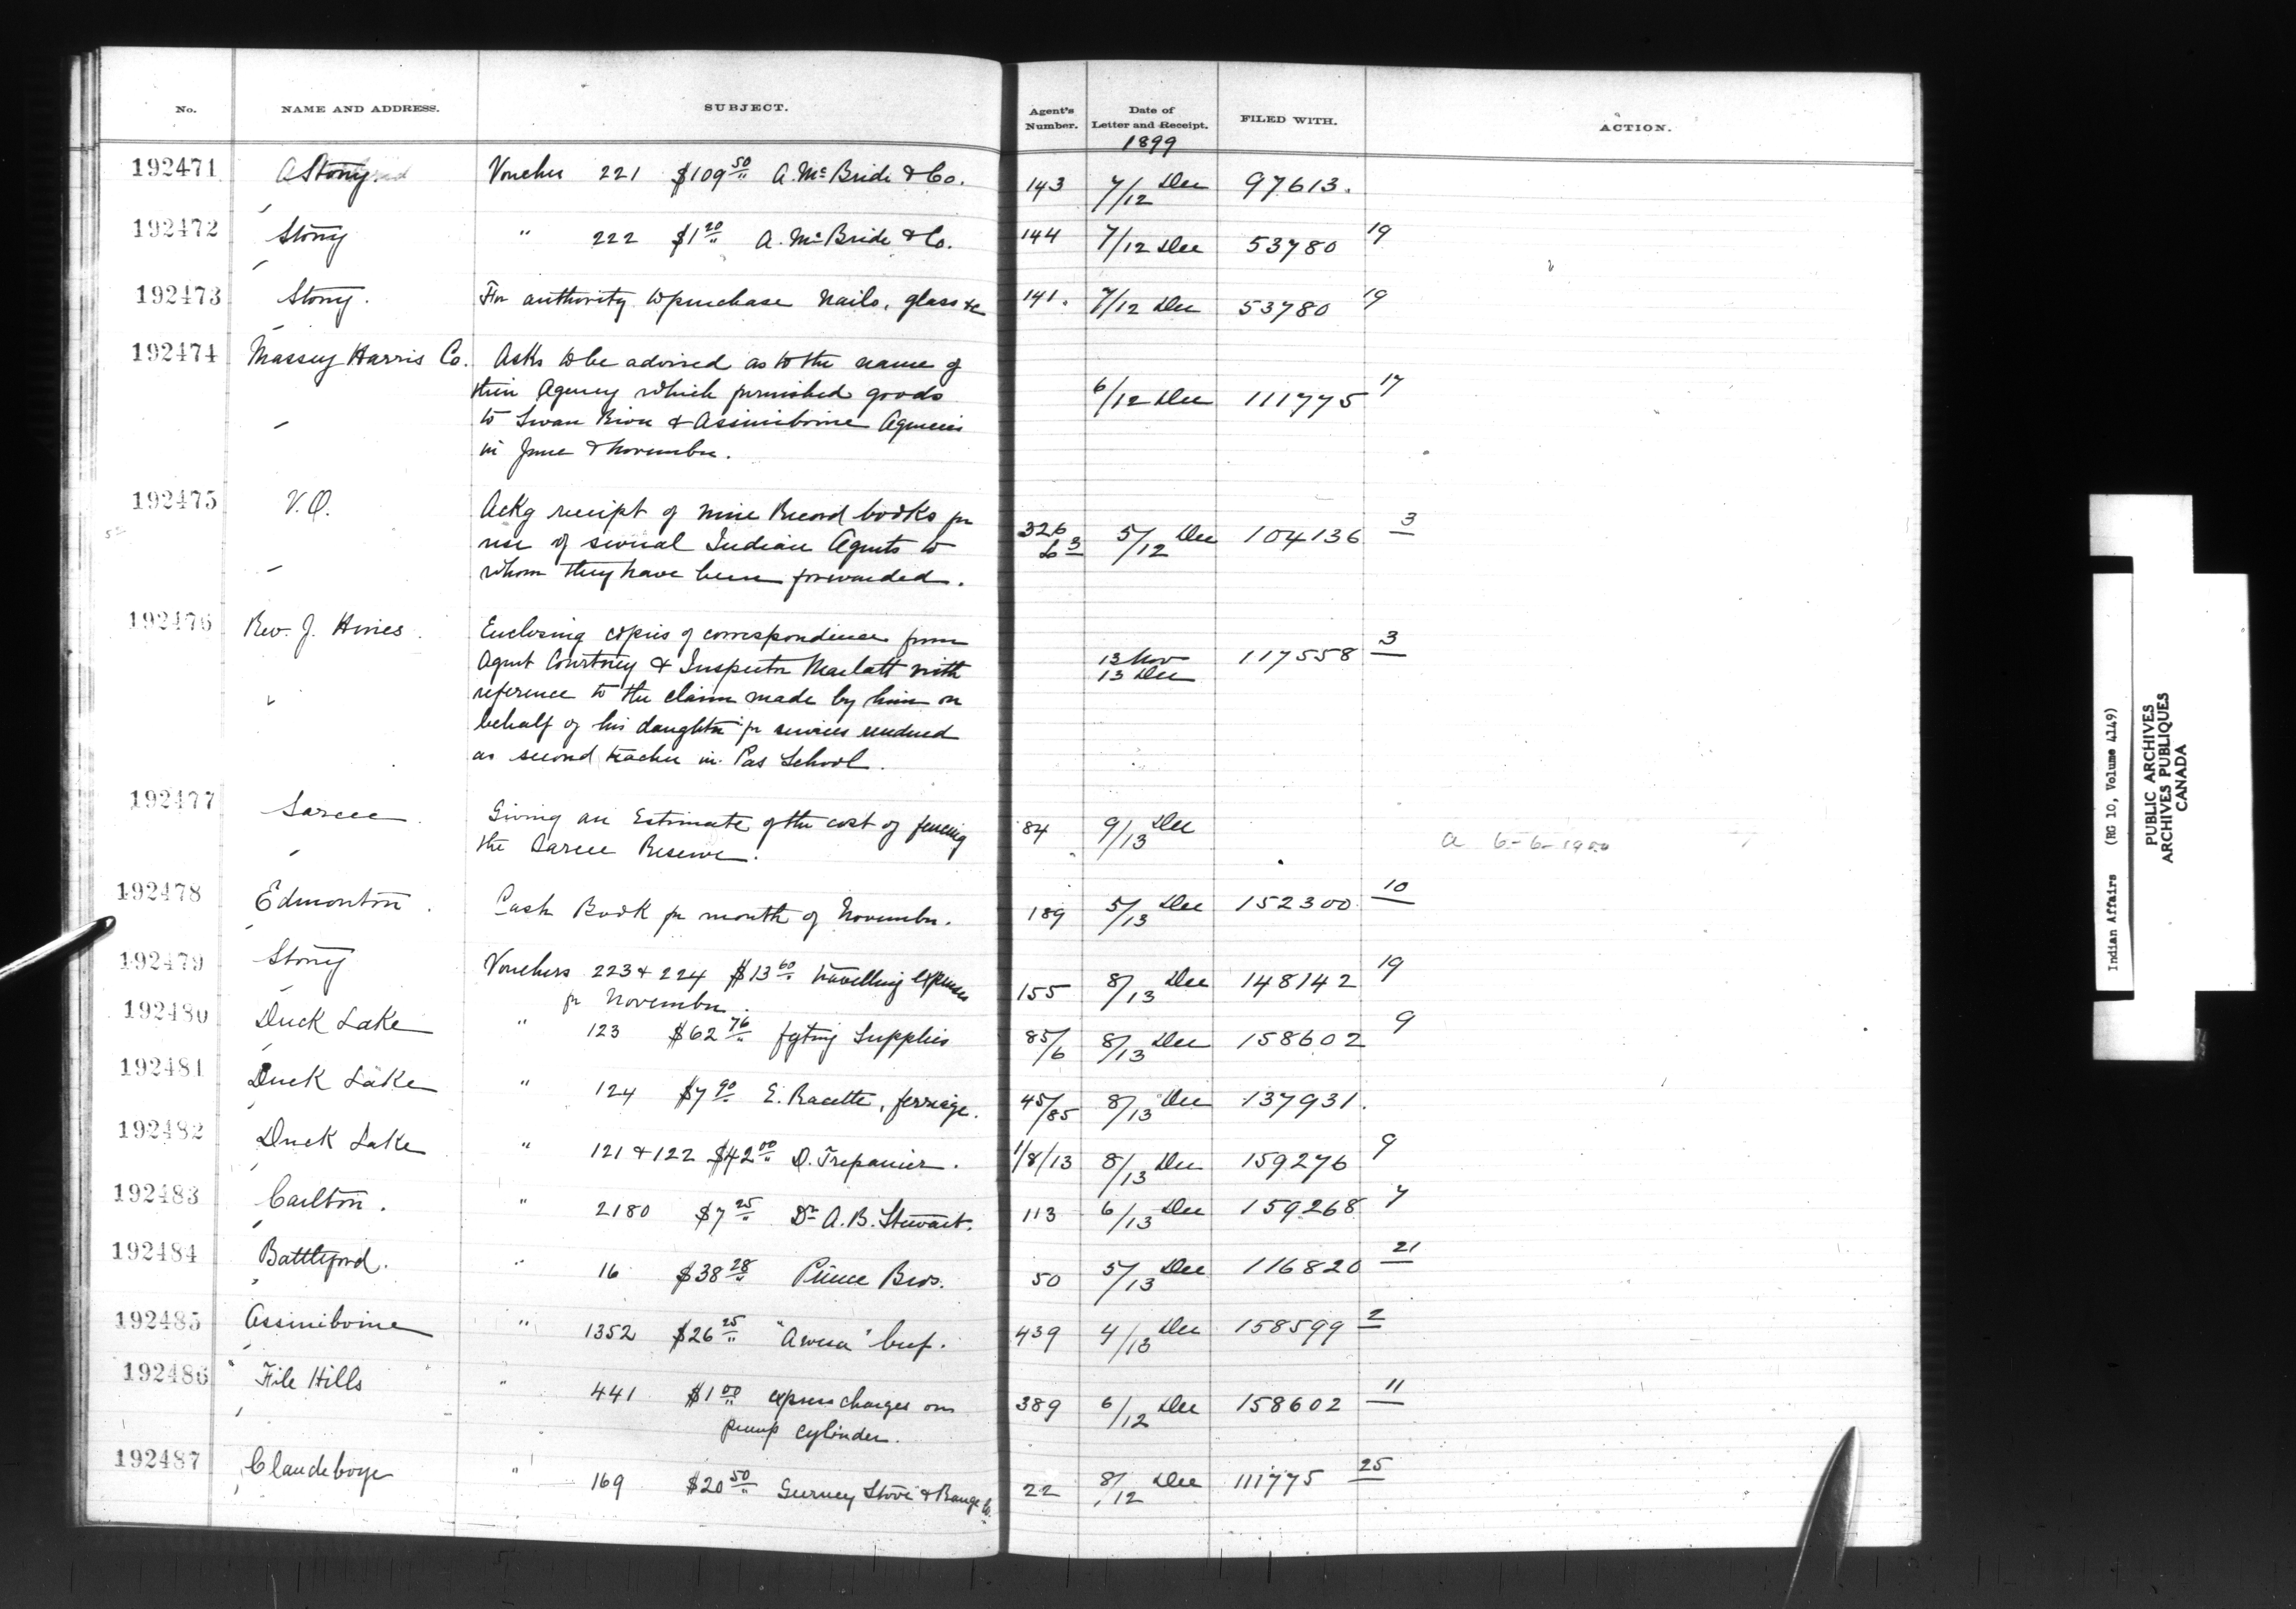 No. NAME AND ADDRESS. SUBJECT. Agent's Number. Date of Letter and Receipt. FILED WITH. ACTION.
1899
192471 Stony Voucher 221 $109 50 A. McBride & Co. 143 7/12 Dec 97613.
192472 Stony " 222 $1 20 A. McBride & Co. 144 7/12 Dec 53780 19
192473 Stony. For authority to purchase nails, glass &c 141. 7/12 Dec 53780 19
192474 Massey Harris Co. Asks to be advised as to the name of
their Agency which furnished goods 6/12 Dec 111775 17
to Swan River & Assiniboine Agencies
in June & November.
192475 V.O. Ackg receipt of nine Record books for
use of several Indian Agents to 326 3 5/12 Dec 104136 3
whom they have been forwarded.
192476 Rev. J. Hines. Enclosing copies of correspondence from
Agent Courtney & Inspector Marlatt with 13 Nov 13 Dec 117558 3
reference to the claim made by him on
behalf of his daughter for services rendered
as second teacher in Pas School.
192477 Sarcee. Giving an Estimate of the cost of fencing 84 9/13 Dec
the Sarcee Reserve. a 6-6-1900
192478 Edmonton. Cash Book for month of November. 189 5/13 Dec 152300 10
192479 Stony Vouchers 223 & 224 $13 60 travelling expenses 155 8/13 Dec 148142 19
for November.
192480 Duck Lake " 123 $62 76 fgting Supplies 85/6 8/13 Dec 158602 9
192481 Duck Lake " 124 $7 90 E. Racette, ferriage. 45/85 8/13 Dec 137931.
192482 Duck Lake " 121 & 122 $42 00 D. Trepanier. 1/8/13 8/13 Dec 159276 9
192483 Carlton. " 2180 $7 25 Dr. A. B. Stewart. 113 6/13 Dec 159268 7
192484 Battleford. " 16 $38 28 Prince Bros. 50 5/13 Dec 116820 21
192485 Assiniboine " 1352 $26 25 beef. 439 4/13 Dec 158599 2
192486 File Hills " 441 $1 00 express charges on 389 6/12 Dec 158602 11
pump cylinder.
192487 Clandeboye " 169 $20 50 Gurney Stove & Range Co. 22 8/12 Dec 111775 25
Indian Affairs (RG 10, Volume 4149)
PUBLIC ARCHIVES
ARCHIVES PUBLIQUES
CANADA